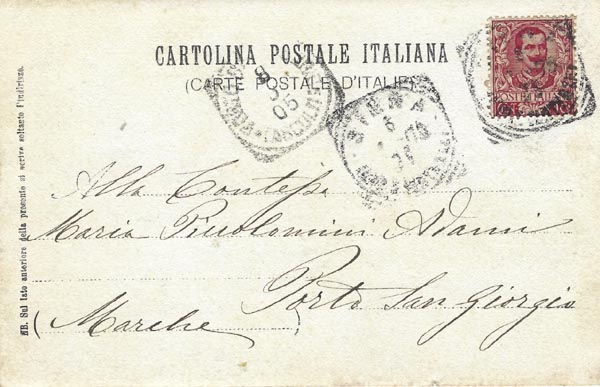 CARTOLINA POSTALE ITALIANA
(CARTE POSTALE D'ITALIE)
POSTE ITALIANE
SIENA
05
Alla Contessa
Maria Piccolomini Adami
Porto San Giorgio
(Marche)
NB. Sul lato anteriore della presente si scrive soltanto l'indirizzo.